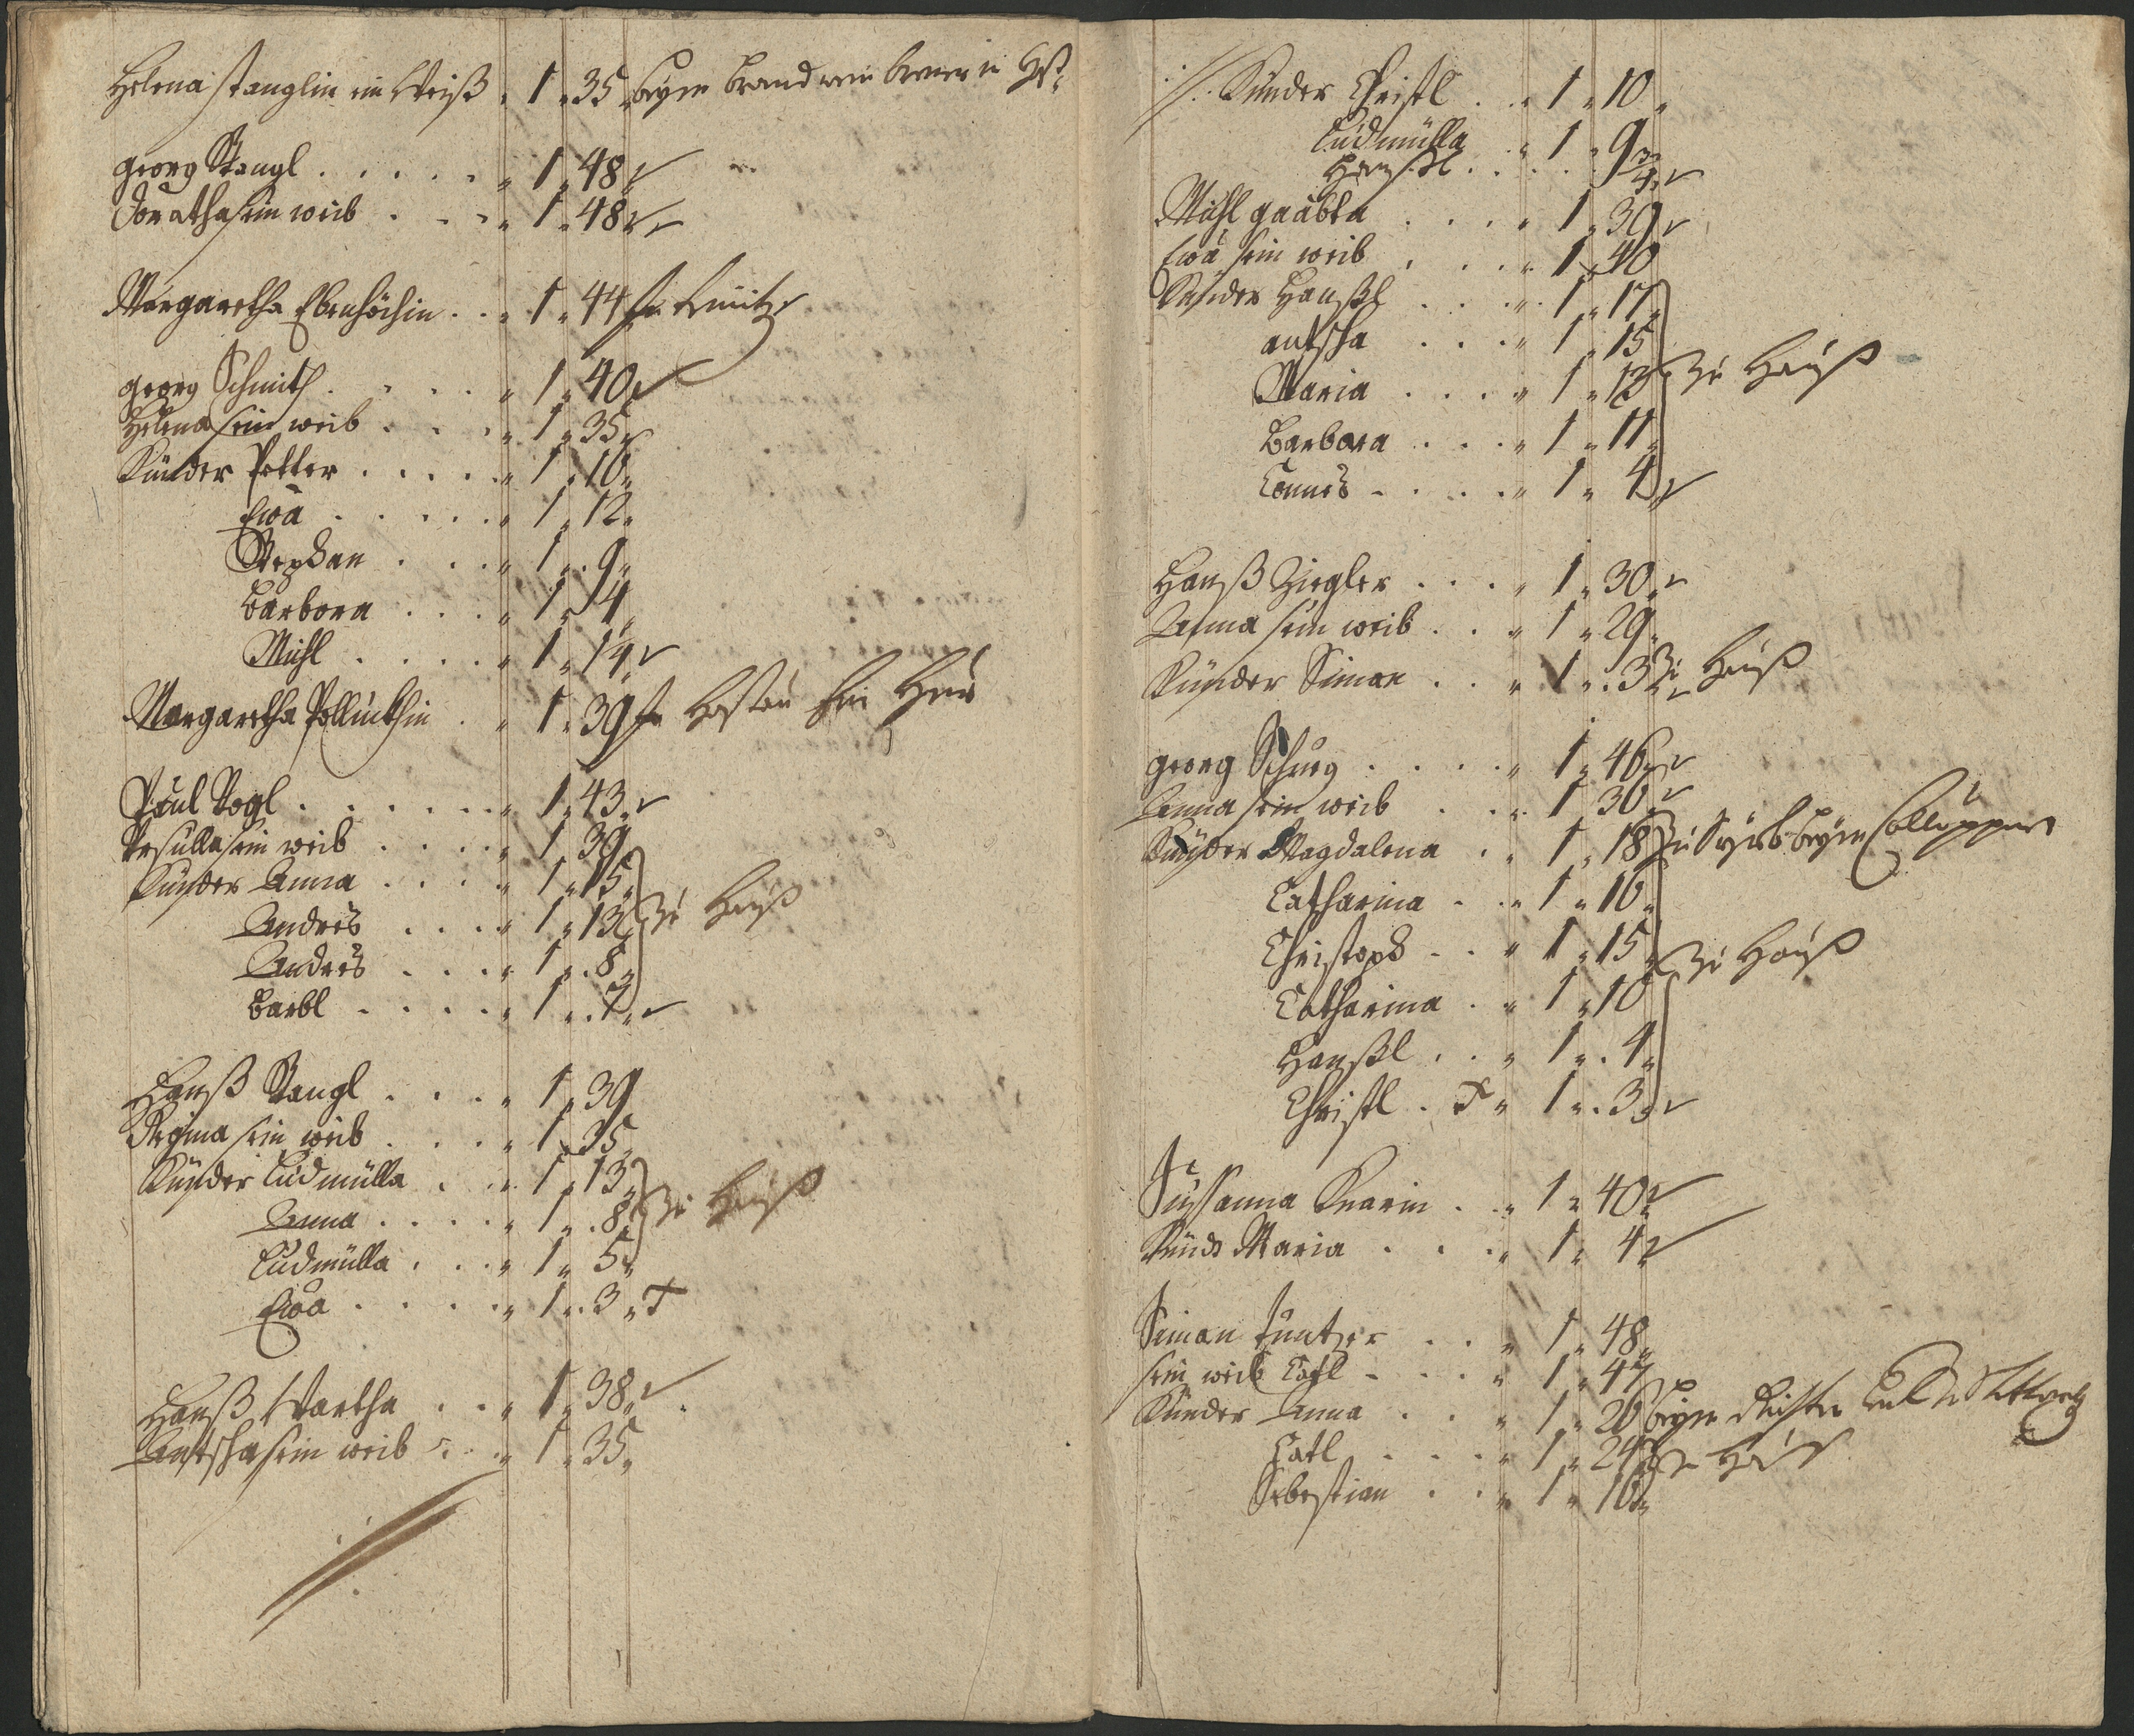 Helena Stanglin ein Weiß " 1 " 35 " beym brandwein brener in
Georg Stangl . . . . . " 1 " 48 "
Dorathea sein weib . . . " 1 " 48 "
Margaretha Ebenhöchin . . " 1 " 44
Georg Schmith . . . . " 1 " 40 "
Helena sein weib . . . " 1 " 35 "
Künder Petter . . . . " 1 " 16 "
Ewa . . . . . " 1 " 12 "
Stephan . . . " 1 " . 9 "
Barbora . . . " 1 " 4 "
Michl . . . . " 1 "
Margaretha . " 1 " 39
Paul Vogl . . . . . . " 1 " 43 "
Ursulla sein weib . . . . " 1 " 39 "
Künder Anna . . . . " 1 " 15 "
Andres . . . . " 1 " 13 " zu Hauß
Andres . . . . " 1 " . 8 "
Barbl . . . . . " 1 " . 7 "
Hanß Stangl . . . . " 1 " 39
Regina sein weib . . . . " 1 " 35 "
Künder Ludmülla . . " 1 " 13 "
Anna . . . . . " 1 " . 8 " zu Hauß
Ludmülla . . . " 1 " 5 "
Ewa . . . . . " 1 " . 3 " T
Hanß Wartha . . . " 1 " 38 "
Antscha sein weib . . " 1 " 35 "
//. Künder Christl . . " 1 " 10 "
Ludmülla " 1 " 9 "
Hanßl . . . . 3/4 "
Michl . . . . " 1 " 39 "
Ewa sein weib . . . " 1 " 40
Künder Hanßl . . . " 1 " 17 "
Antscha . . . " 1 " 15
Maria . . . . " 1 " 13 " zu Hauß
Barbora . . . " 1 " 11 "
. . . . . " 1 " 4 "
Hanß Ziegler . . . . " 1 " 30 "
Anna sein weib . . . " 1 " 29 "
Künder Simon . . . " 1 " . 3 " zu Hauß
Georg . . . . . " 1 " 46 "
Anna sein weib . . . " 1 " 36 "
Künder Magdalena . . " 1 " 18 " zu beym
Catharina . . " 1 " 16 "
Christoph . . " 1 " 15 " zu Hauß
Catharina . . " 1 " 10 "
Hanßl . . . " 1 " . 4 "
Christl . T " 1 " . 3 "
Sussanna . . " 1 " 40 "
Künd Maria . . . " 1 " 4 "
Simon . . . " 1 " 48 "
sein weib Catl . . . " 1 " 47
Künder Anna . . . " 1 " 26 beym
Catl . . . . " 1 " 24 "
Sebestian . . " 1 " 16 "